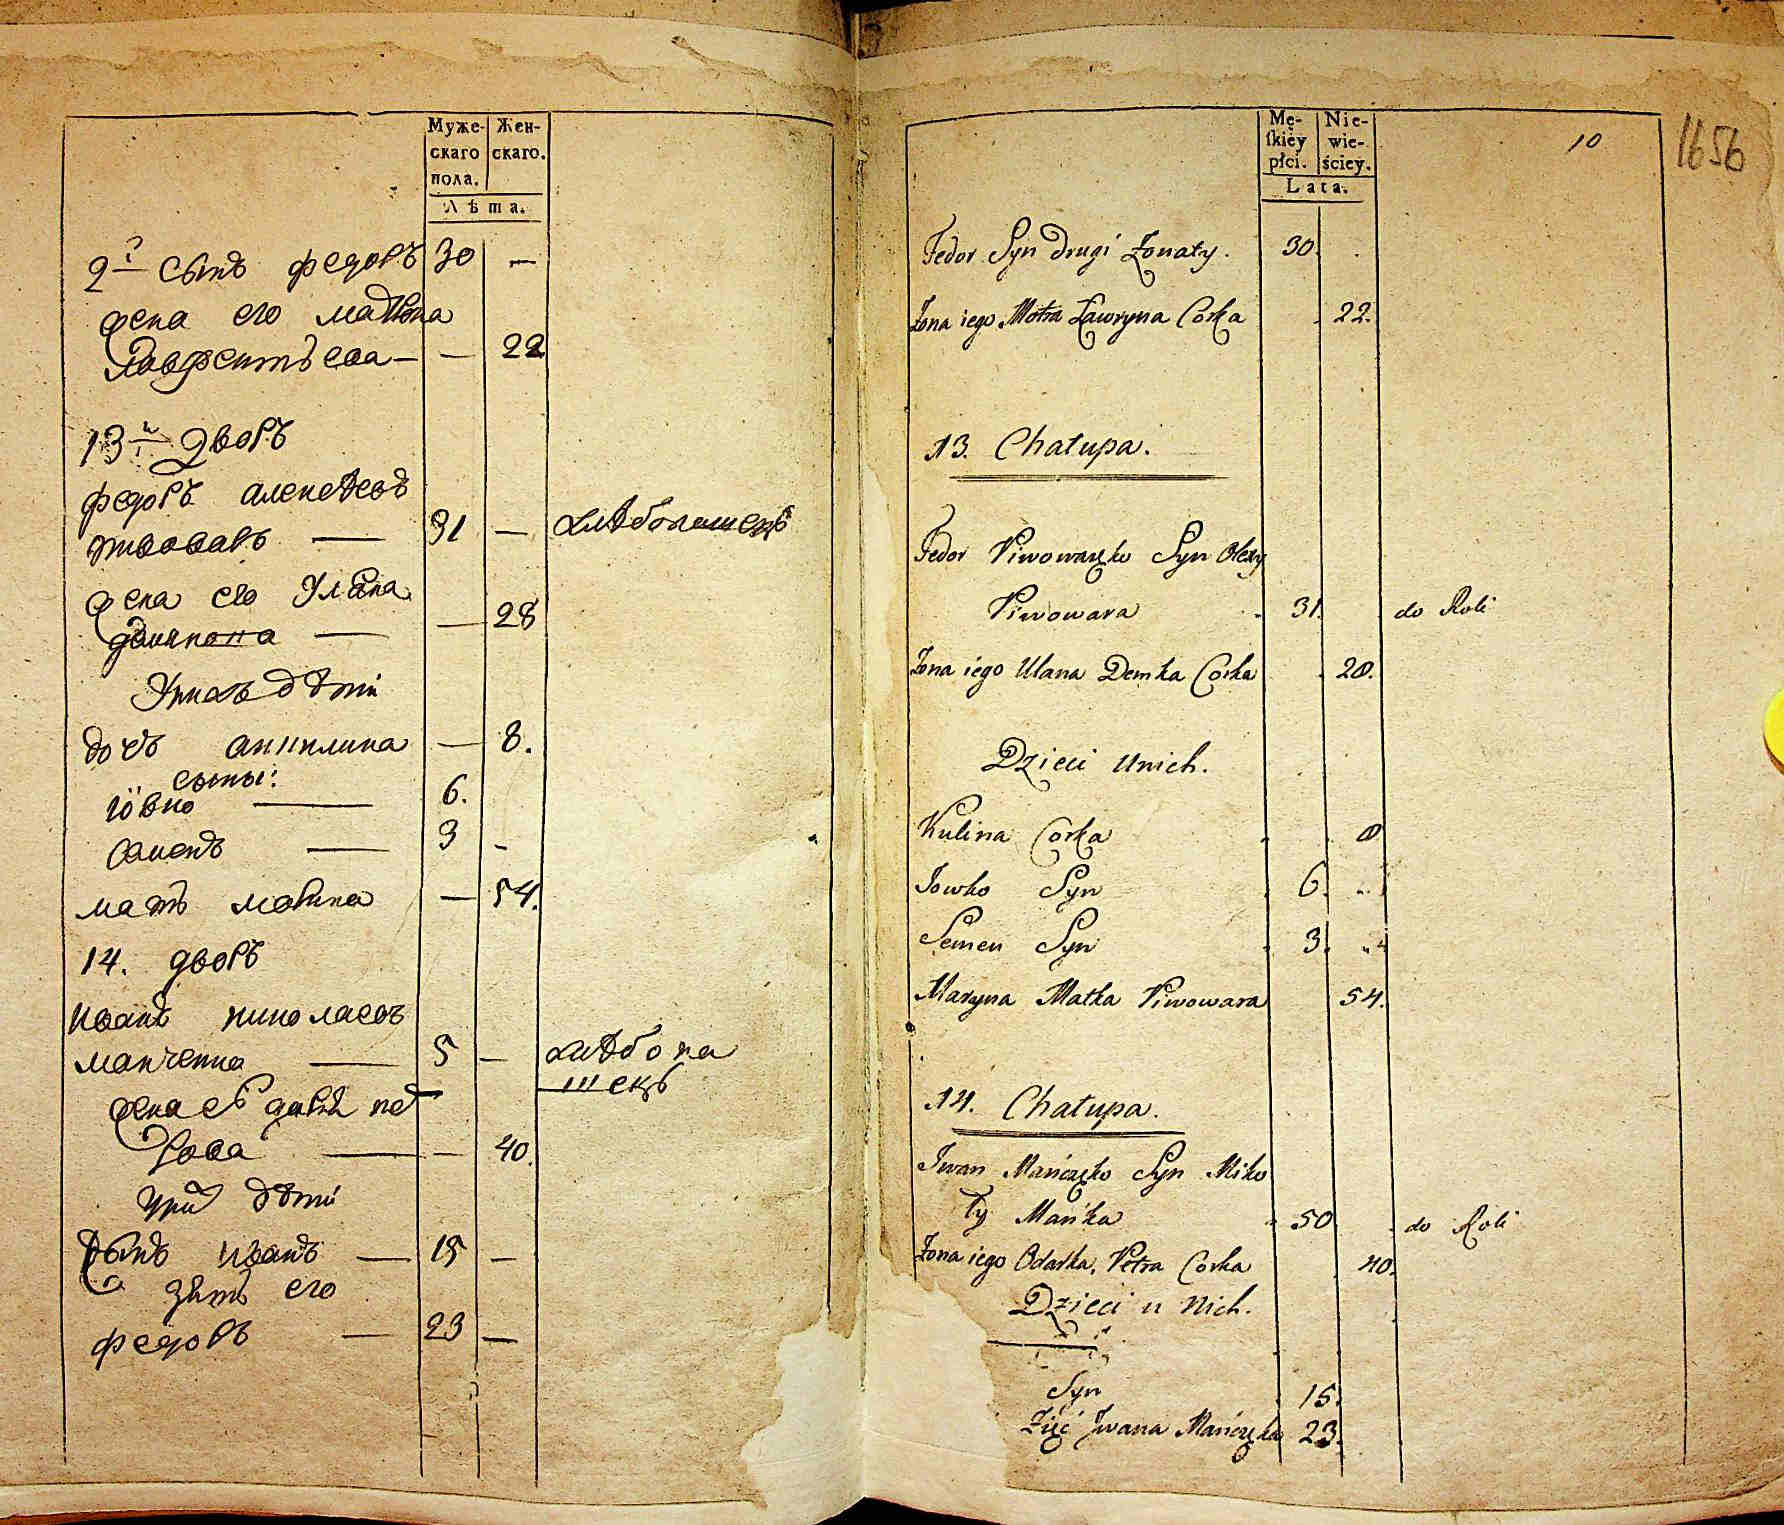 Муже-
скаго
пола.
Жен-
скаго.
Лѣта.
2й сынъ федоръ 30 —
жена его матрона
лаврентьева — — 22
13й дворъ
федоръ алексѣевъ
пивоваръ — 31 — хлѣбопашецъ
жена его Ульяна
— — 28
У нихъ дѣти
дочь акилина — 8.
сыны:
Iовко — 6.
семенъ — 3 -
мать марина — 54.
14. дворъ
иванъ николаевъ
манченко — 5 — хлѣбопа
шецъ
жена его дарья пет
рова — — 40.
при дѣти
сынъ иванъ — 15 —
зять его
федоръ — 23 —
Mę-
ſkiéy
płci.
Nie-
wie-
ściey.
Lata.
10
1656
Fedor Syn drugi Żonaty. 30.
Żona iego Motra Ławryna Corka 22.
13. Chałupa.
Fedor Piwowarzko Syn Olexy
Piwowara 31. do Roli
Żona iego Ulana Demka Corka 28.
Dzieci Unich.
Kulina Corka 8
Jowko Syn 6.
Semen Syn 3.
Maryna Matka Piwowara 54.
14. Chałupa.
Iwan Mańczko Syn Miko
ły Mańka 50 do Roli
Żona iego Odarka, Petra Corka 40.
Dzieci u Nich.
Syn 15.
Zięć Jwana Mańczka 23.